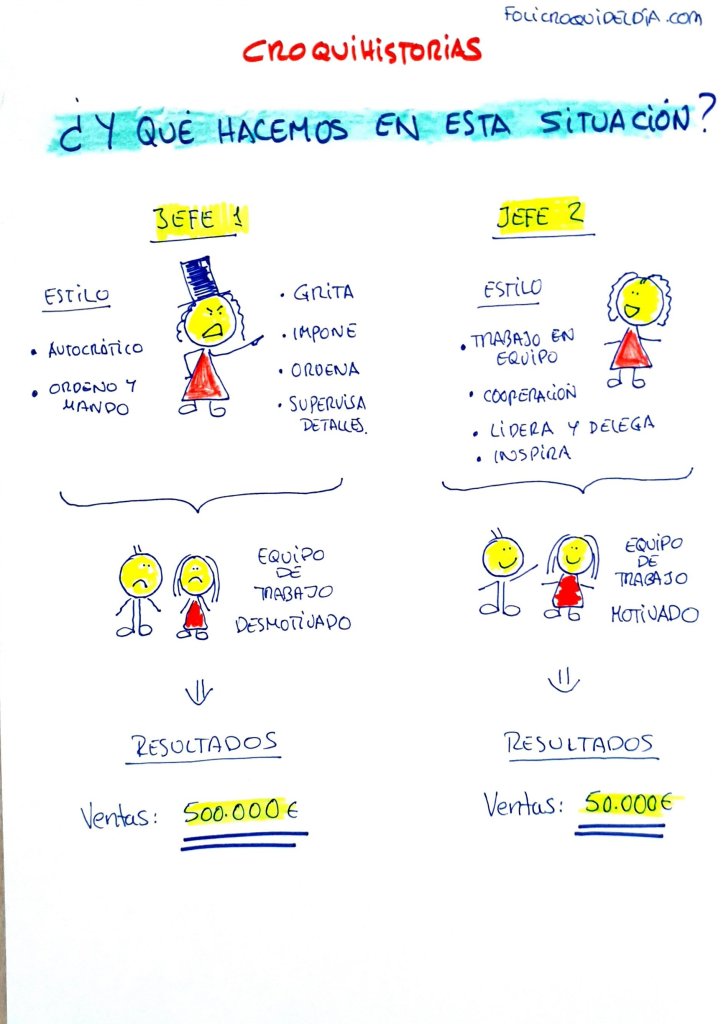 FOLICROQUIDELDÍA.COM
CROQUIHISTORIAS
¿Y QUÉ HACEMOS EN ESTA SITUACIÓN?
JEFE 1
ESTILO
• AUTOCRÁTICO
• ORDENO Y
MANDO
• GRITA
• IMPONE
• ORDENA
• SUPERVISA
DETALLES.
EQUIPO
DE
TRABAJO
DESMOTIVADO
RESULTADOS
Ventas: 500.000€
JEFE 2
ESTILO
• TRABAJO EN
EQUIPO
• COOPERACIÓN
• LIDERA Y DELEGA
• INSPIRA
EQUIPO
DE
TRABAJO
MOTIVADO
RESULTADOS
Ventas: 50.000€